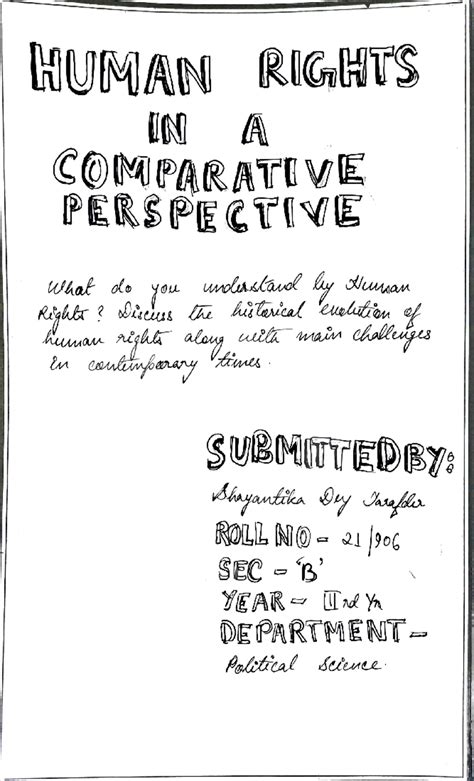 HUMAN RIGHTS
IN A
COMPARATIVE
PERSPECTIVE
What do you understand by Human
Rights? Discuss the historical evolution of
human rights along with main challenges
in contemporary times.
SUBMITTED BY:
Shayantika Dey Tarafder
ROLL NO - 21/906
SEC - 'B'
YEAR - IIrd Yr
DEPARTMENT -
Political Science.